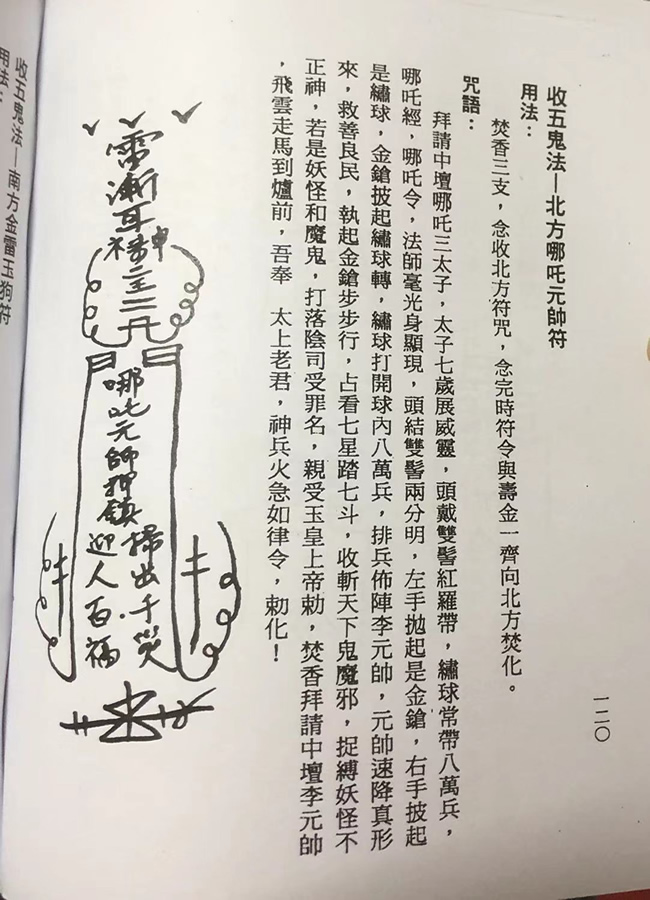 一二〇
收五鬼法─北方哪吒元帥符
用法：
焚香三支，念收北方符咒，念完時符令與壽金一齊向北方焚化。
咒語：
拜請中壇哪吒三太子，太子七歲展威靈，頭戴雙髻紅羅帶，繡球常帶八萬兵，
哪吒經，哪吒令，法師毫光身顯現，頭結雙髻兩分明，左手拋起是金鎗，右手披起
是繡球，金鎗披起繡球轉，繡球打開球內八萬兵，排兵佈陣李元帥，元帥速降真形
來，救善良民，執起金鎗步步行，占看七星踏七斗，收斬天下鬼魔邪，捉縛妖怪不
正神，若是妖怪和魔鬼，打落陰司受罪名，親受玉皇上帝勅，焚香拜請中壇李元帥
，飛雲走馬到爐前，吾奉　太上老君，神兵火急如律令，勅化！
哪吒元帥押鎮
掃出千災
迎人百福
收五鬼法─南方金雷玉狗符
用法：